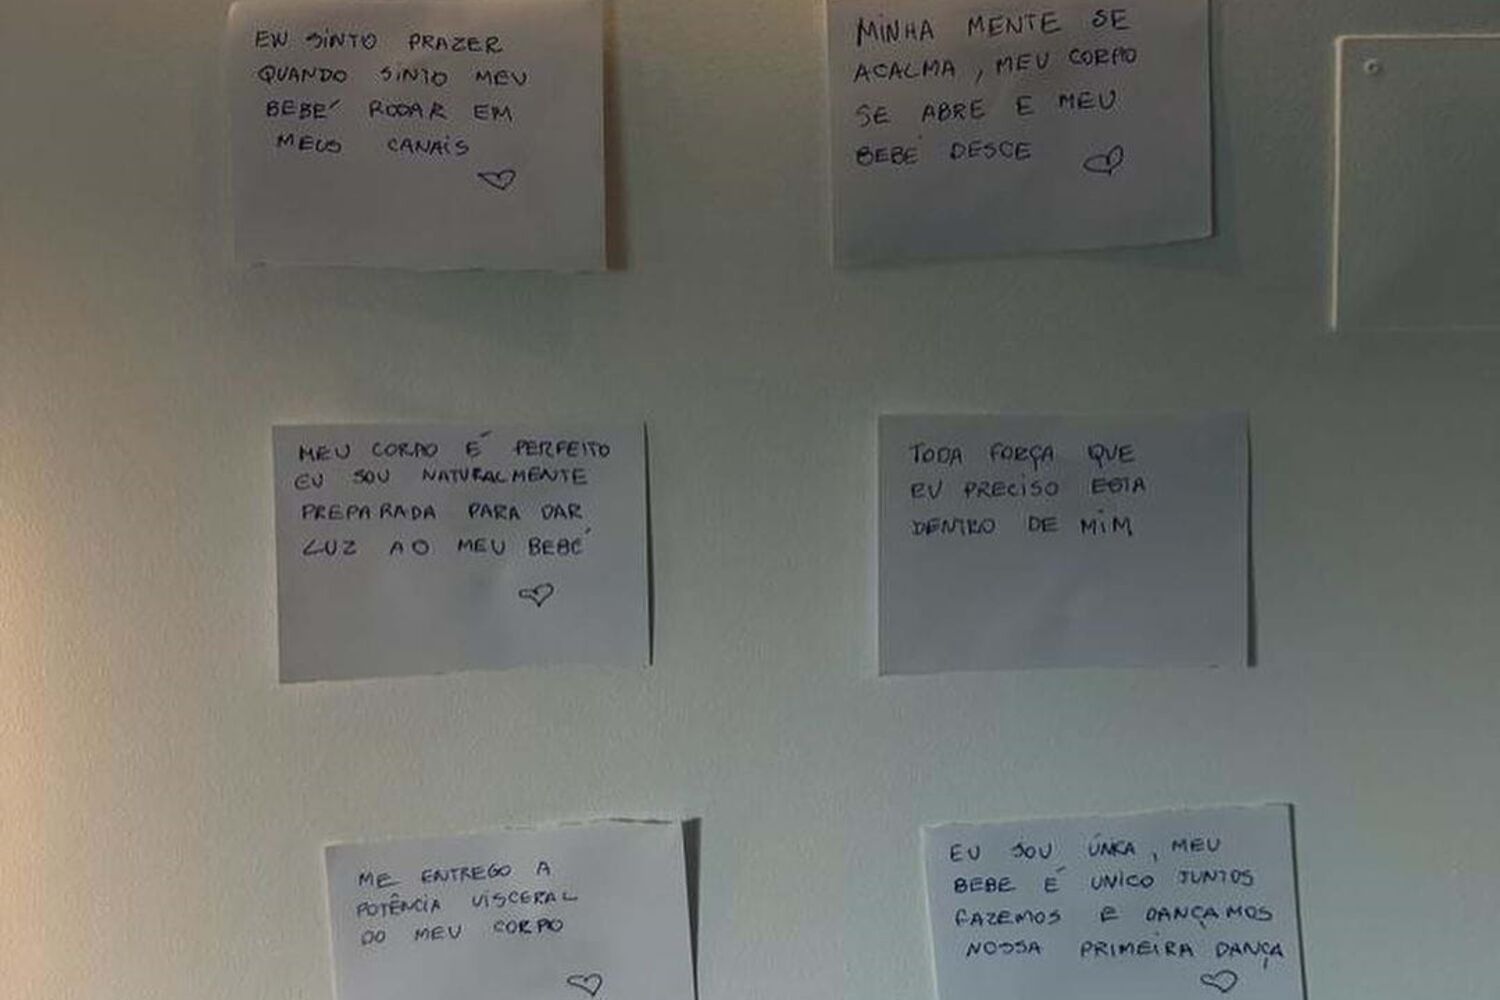 EU SINTO PRAZER
QUANDO SINTO MEU
BEBÉ RODAR EM
MEUS CANAIS
MINHA MENTE SE
ACALMA, MEU CORPO
SE ABRE E MEU
BEBÉ DESCE
MEU CORPO É PERFEITO
EU SOU NATURALMENTE
PREPARADA PARA DAR
LUZ AO MEU BEBÉ
TODA FORÇA QUE
EU PRECISO ESTA
DENTRO DE MIM
ME ENTREGO A
POTÊNCIA VISCERAL
DO MEU CORPO
EU SOU ÚNICA, MEU
BEBE É UNICO JUNTOS
FAZEMOS E DANÇAMOS
NOSSA PRIMEIRA DANÇA